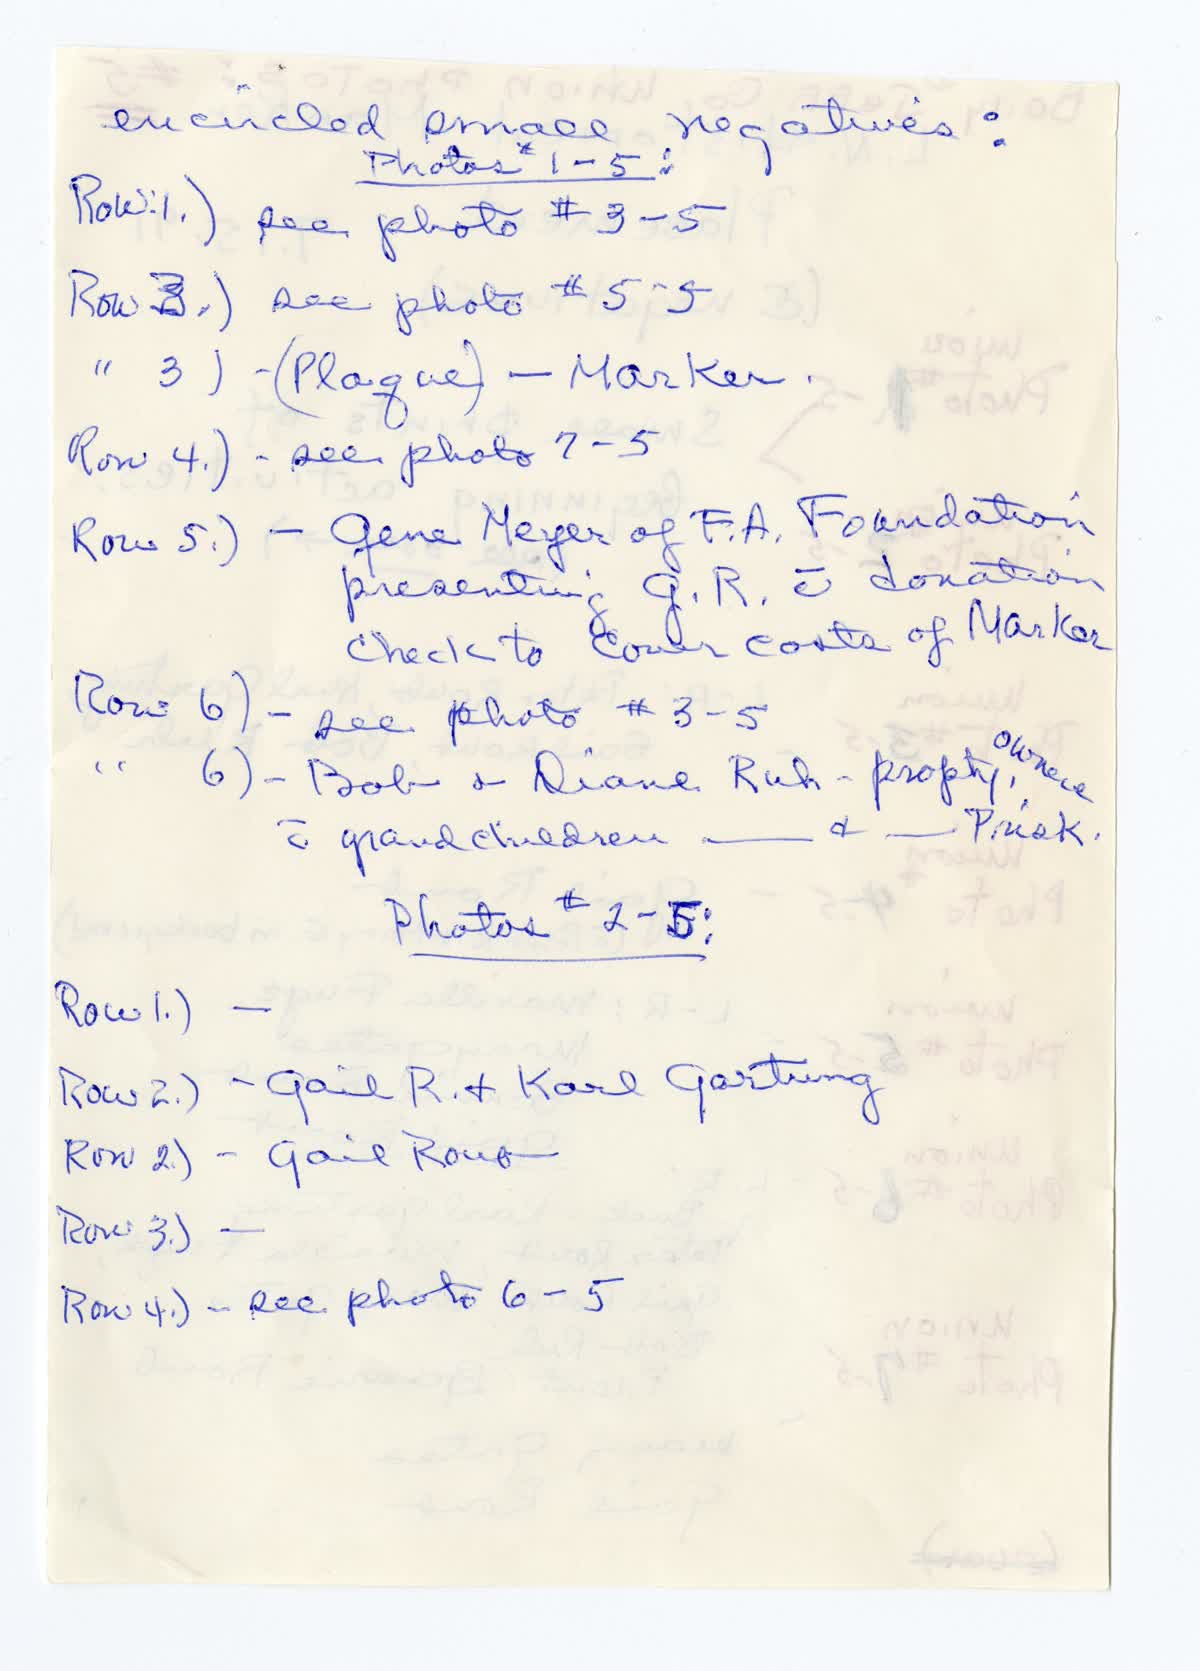 encircled small negatives:
Photos # 1-5:
Row 1.) see photo # 3-5
Row 2.) see photo # 5-5
" 3) - (Plaque) - Marker.
Row 4.) - see photo 7-5
Row 5.) - Gene Meyer of F.A. Foundation
presenting G.R. c̄ donation
check to cover costs of Marker
Row 6) - see photo # 3-5
" 6) - Bob & Diane Ruh - propty. owners
c̄ grandchildren ___ & ___ Prisk.
Photos # 2-5:
Row 1.) —
Row 2.) - Gail R. & Karl Gartung
Row 2.) - Gail Roub
Row 3.) —
Row 4.) - see photo 6-5